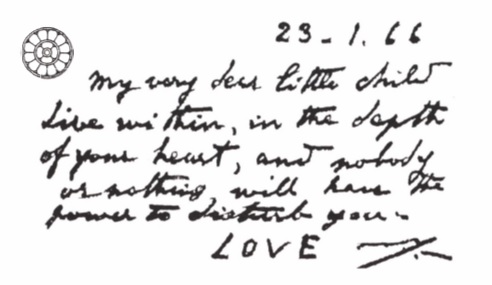 23-1.66
My very dear little child
Live within, in the depth
of your heart, and nobody
or nothing will have the
power to disturb you.
LOVE